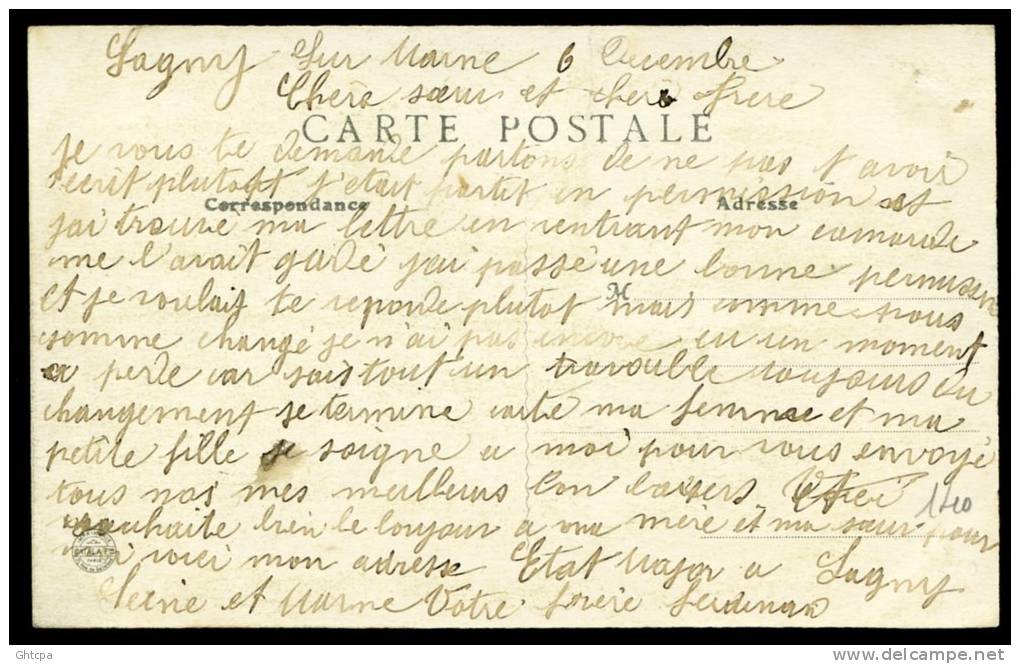 Lagny Sur Marne 6 Decembre
Chère sœur et cher frere
CARTE POSTALE
Je vous te demande partons de ne pas t avoir
ecrit plutot j'etait partit en permission et
Correspondance Adresse
j'ai trouve ma lettre en rentrant mon camarade
me l'avait gardé j'ai passé une bonne permission
M
et je voulais te reponde plutot mais comme nous
somme changé je n'ai pas encore eu un moment
a perde car sais tout un travouble toujours du
changement je termine carte ma femme et ma
petite fille se soigne a moi pour vous envoyé
tous nos mes meilleurs bon baisers
souhaite bien le bonjour a ma mère et ma sœur pour
1+10
voici mon adresse Etat Major a Lagny
Seine et Marne Votre frère Ferdinand
Ghtcpa
www.delcampe.net